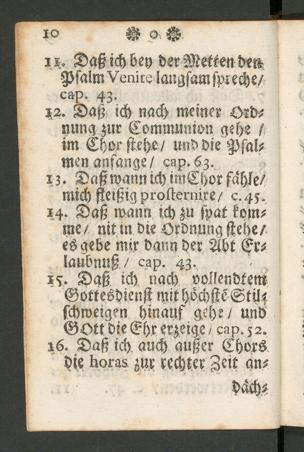 10 ❋ o ❋
11. Daß ich bey der Metten den
Psalm Venite langsam spreche/
cap. 43.
12. Daß ich nach meiner Ord-
nung zur Communion gehe /
im Chor stehe/ und die Psal-
men anfange/ cap. 63.
13. Daß wann ich im Chor fähle/
mich fleißig prosternire/ c. 45.
14. Daß wann ich zu spat kom-
me/ nit in die Ordnung stehe/
es gebe mir dann der Abt Er-
laubnuß / cap. 43.
15. Daß ich nach vollendtem
Gottesdienst mit höchstē Stil-
schweigen hinauf gehe / und
GOtt die Ehr erzeige/ cap. 52.
16. Daß ich auch außer Chors
die horas zur rechter Zeit an-
däch-